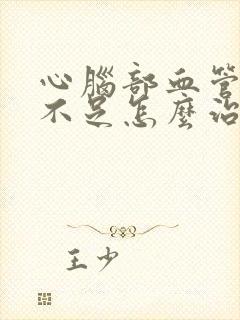 心腦部血管
不足怎麼治
王少